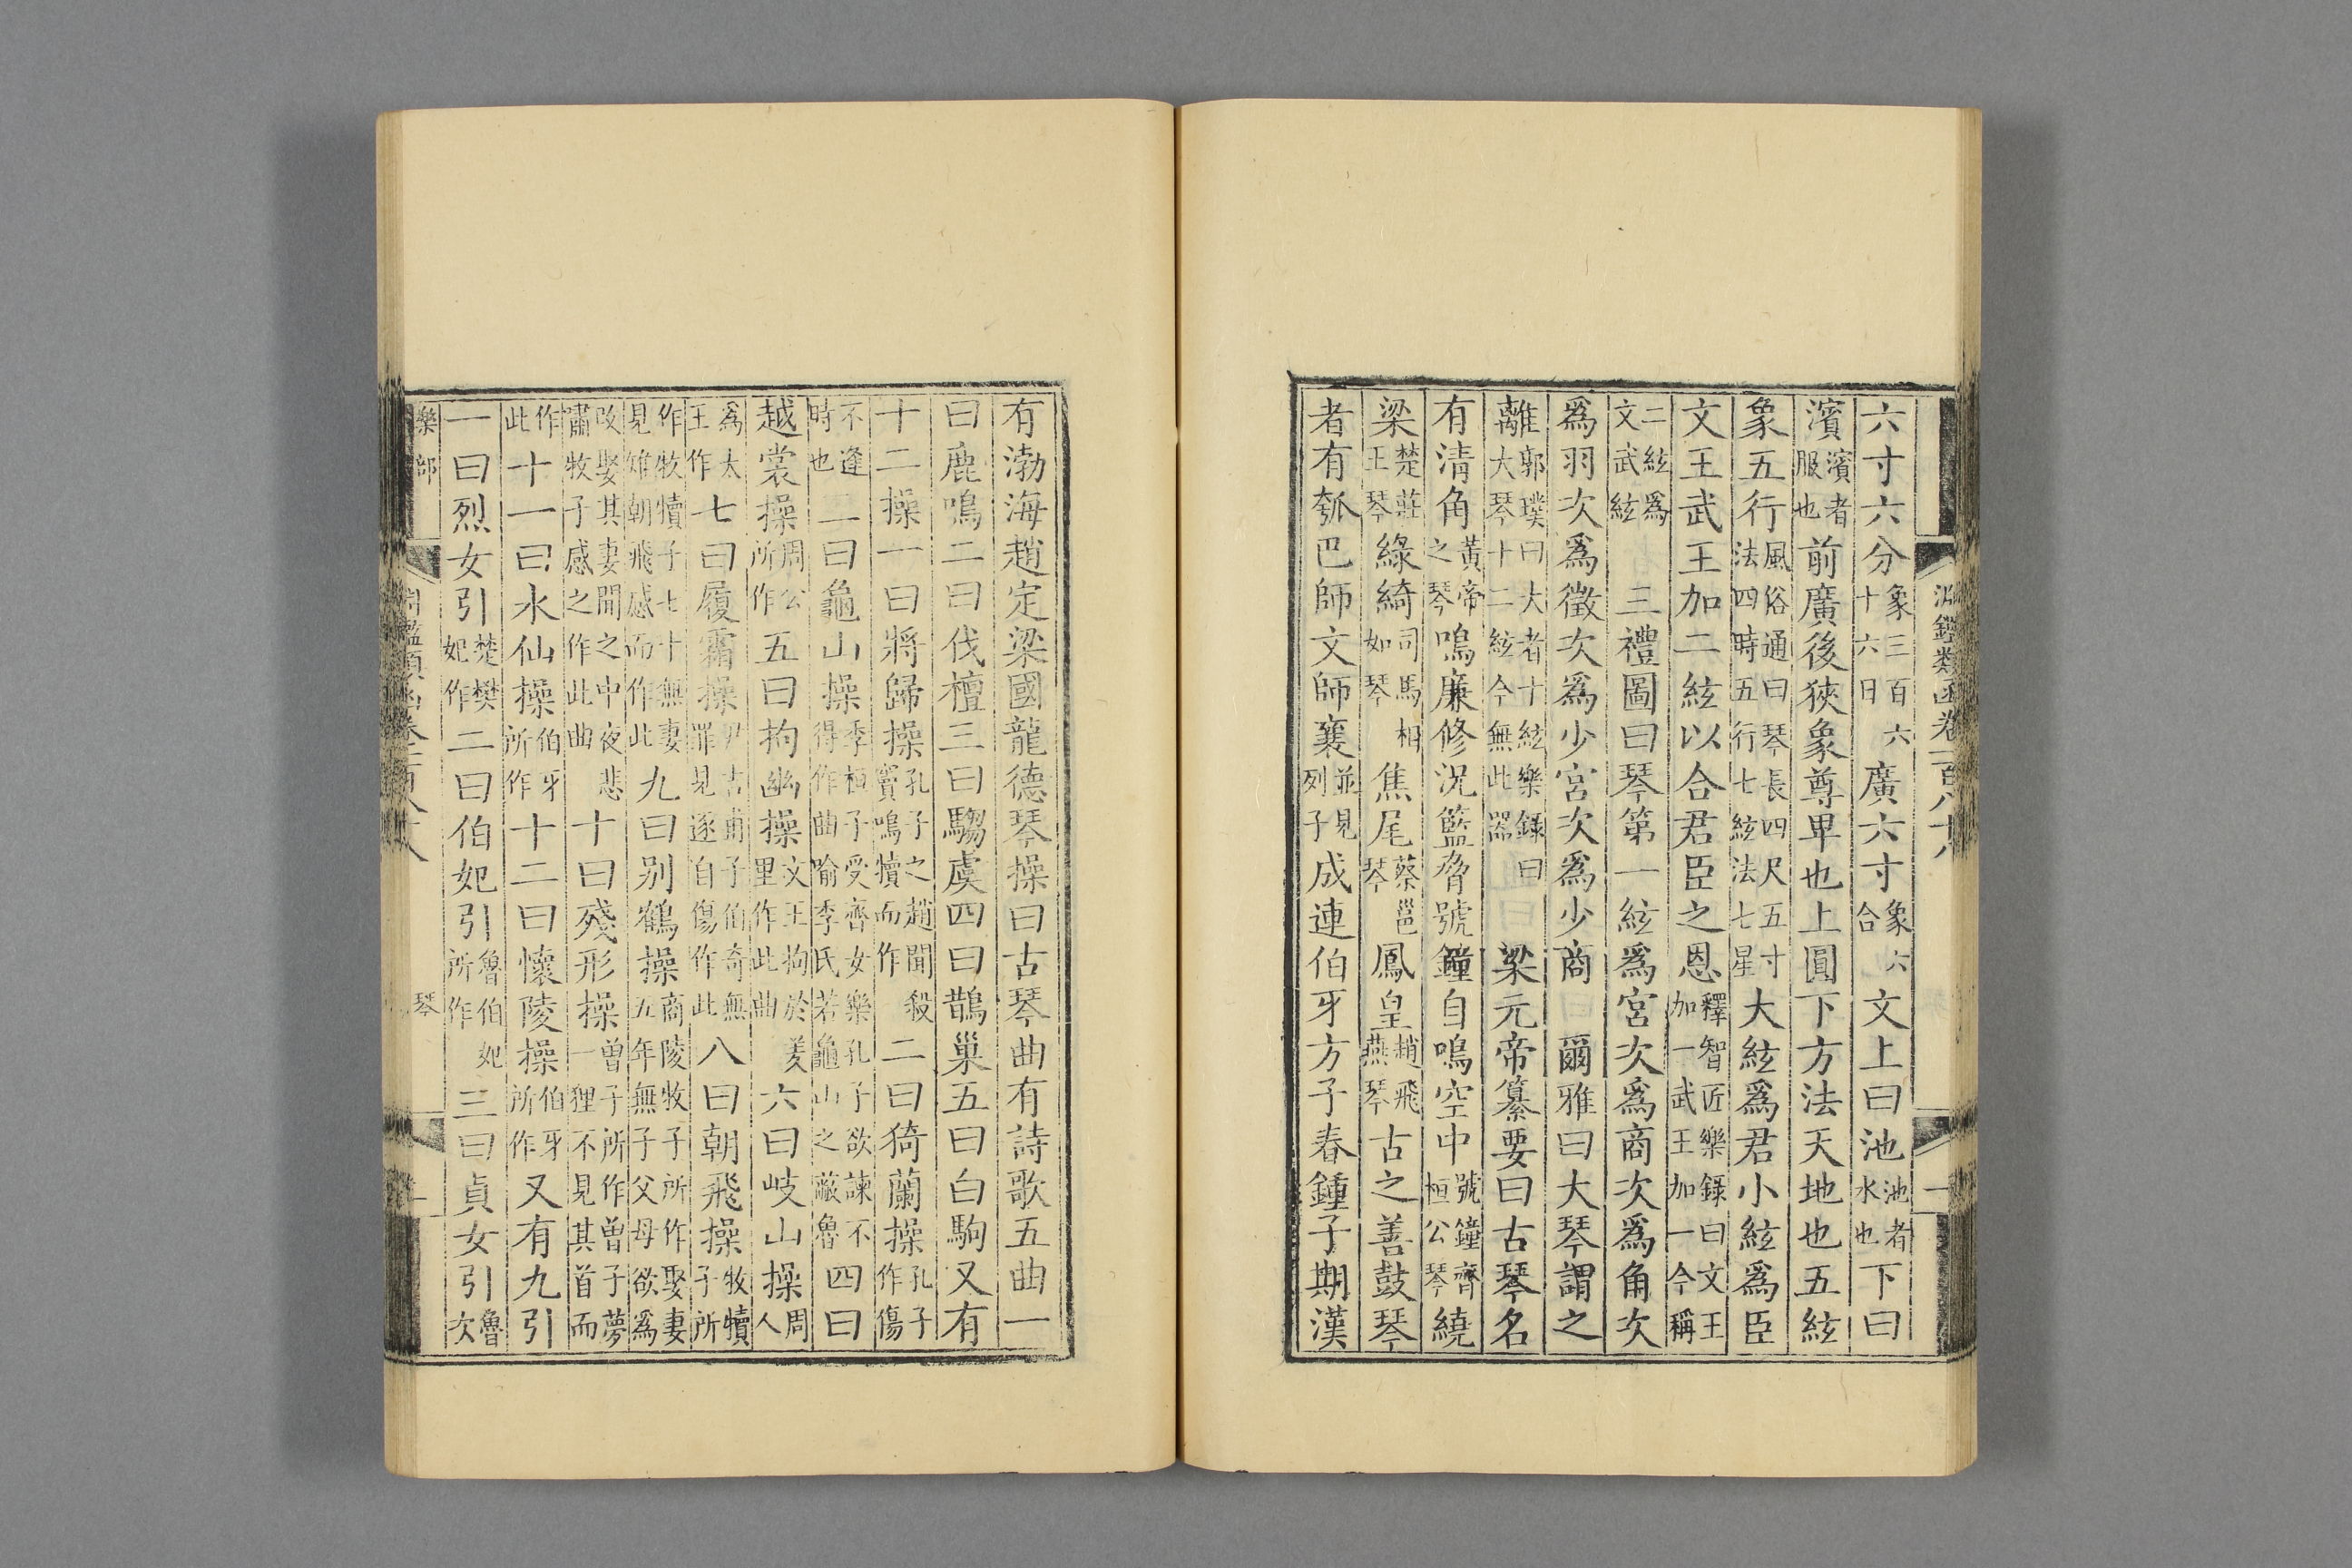 六寸六分象三百六十六日廣六寸象六合文上曰池池者水也下曰
濱濱者服也前廣後狹象尊卑也上圓下方法天地也五絃
象五行風俗通曰琴長四尺五寸法四時五行七絃法七星大絃爲君小絃爲臣
文王武王加二絃以合君臣之恩釋智匠樂録曰文王加一武王加一今稱
二絃爲文武絃 三禮圖曰琴第一絃爲宮次爲商次爲角次
爲羽次爲徵次爲少宮次爲少商 爾雅曰大琴謂之
離郭璞曰大者十絃樂録曰大琴十二絃今無此器 梁元帝纂要曰古琴名
有清角黃帝之琴鳴廉修況籃脅號鐘自鳴空中號鐘齊桓公琴繞
梁楚莊王琴綠綺司馬相如琴焦尾蔡邕琴鳳皇趙飛燕琴古之善鼓琴
者有瓠巴師文師襄並見列子成連伯牙方子春鍾子期漢
淵鑑類函卷一百八十八
有渤海趙定梁國龍德琴操曰古琴曲有詩歌五曲一
曰鹿鳴二曰伐檀三曰騶虞四曰鵲巢五曰白駒又有
十二操一曰將歸操孔子之趙聞殺竇鳴犢而作二曰猗蘭操孔子作傷
不逢時也三曰龜山操季桓子受齊女樂孔子欲諫不得作曲喻季氏若龜山之蔽魯四曰
越裳操周公所作五曰拘幽操文王拘於羑里作此曲六曰岐山操周人
爲太王作七曰履霜操尹吉甫子伯奇無罪見逐自傷作此八曰朝飛操牧犢子所
作牧犢子七十無妻見雉朝飛感而作此九曰別鶴操商陵牧子所作娶妻五年無子父母欲爲
改娶其妻聞之中夜悲嘯牧子感之作此曲十曰殘形操曾子所作曾子夢一狸不見其首而
作此十一曰水仙操伯牙所作十二曰懷陵操伯牙所作又有九引
一曰烈女引楚樊妃作二曰伯妃引魯伯妃所作三曰貞女引魯次
樂部 琴